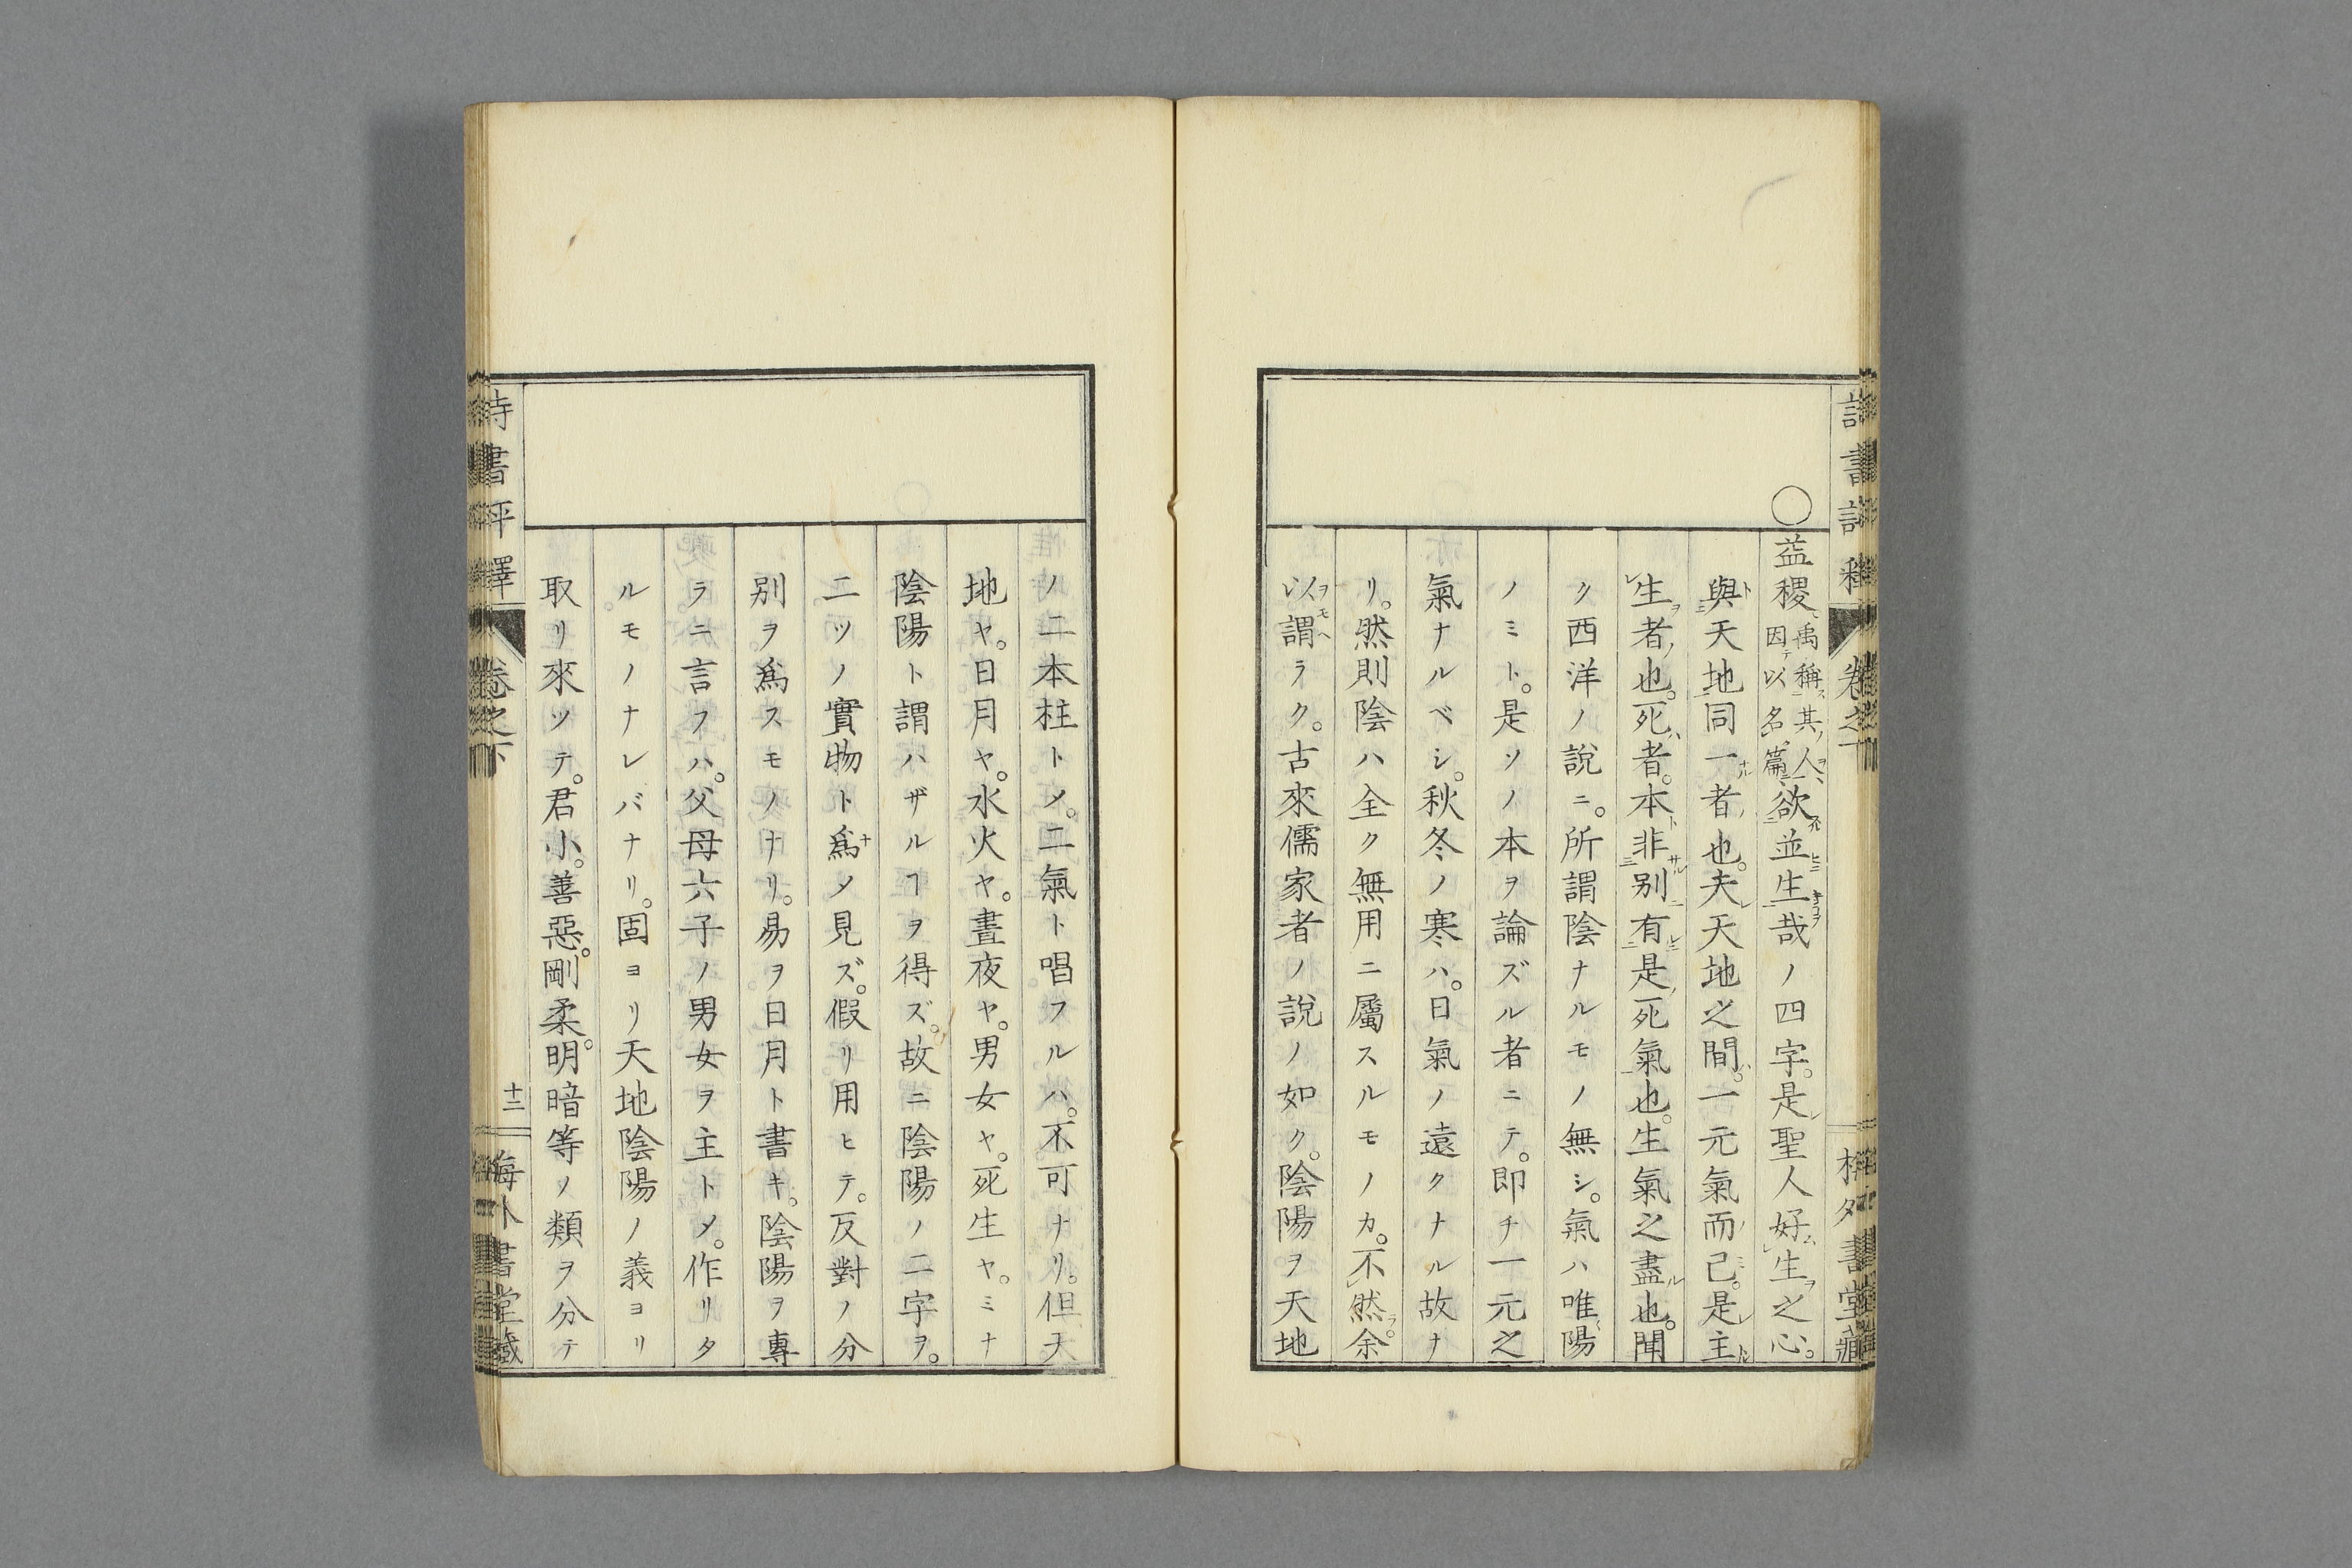 ○益稷禹稱其人因以名篇欲並生哉ノ四字。是聖人好生之心。
與天地同一者也。夫天地之間。一元氣而已。是主
生者也。死者。本非別有是死氣也。生氣之盡也。聞
ク西洋ノ說ニ。所謂陰ナルモノ無シ。氣ハ唯陽
ノミト。是ソノ本ヲ論ズル者ニテ。即チ一元之
氣ナルベシ。秋冬ノ寒ハ。日氣ノ遠クナル故ナ
リ。然則陰ハ全ク無用ニ屬スルモノカ。不然余
以謂ラク。古來儒家者ノ說ノ如ク。陰陽ヲ天地
ノ二本柱トメ。二氣ト唱フルハ。不可ナリ。但天
地ヤ。日月ヤ。水火ヤ。晝夜ヤ。男女ヤ。死生ヤ。ミナ
陰陽ト謂ハザルヿヲ得ズ。故ニ陰陽ノ二字ヲ。
二ツノ實物ト爲メ見ズ。假リ用ヒテ。反對ノ分
別ヲ爲スモノナリ。易ヲ日月ト書キ。陰陽ヲ專
ラニ言フハ。父母六子ノ男女ヲ主トメ。作リタ
ルモノナレバナリ。固ヨリ天地陰陽ノ義ヨリ
取リ來ツテ。君小。善惡。剛柔。明暗等ノ類ヲ分テ
詩書評釋
卷之下
十二
海外書堂藏